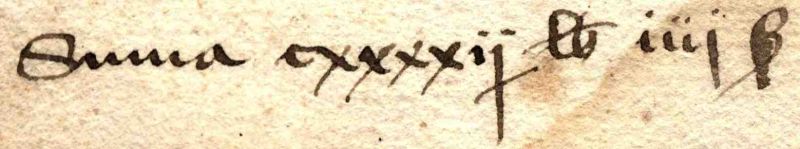 Suma cxxxxij lb iiij ß